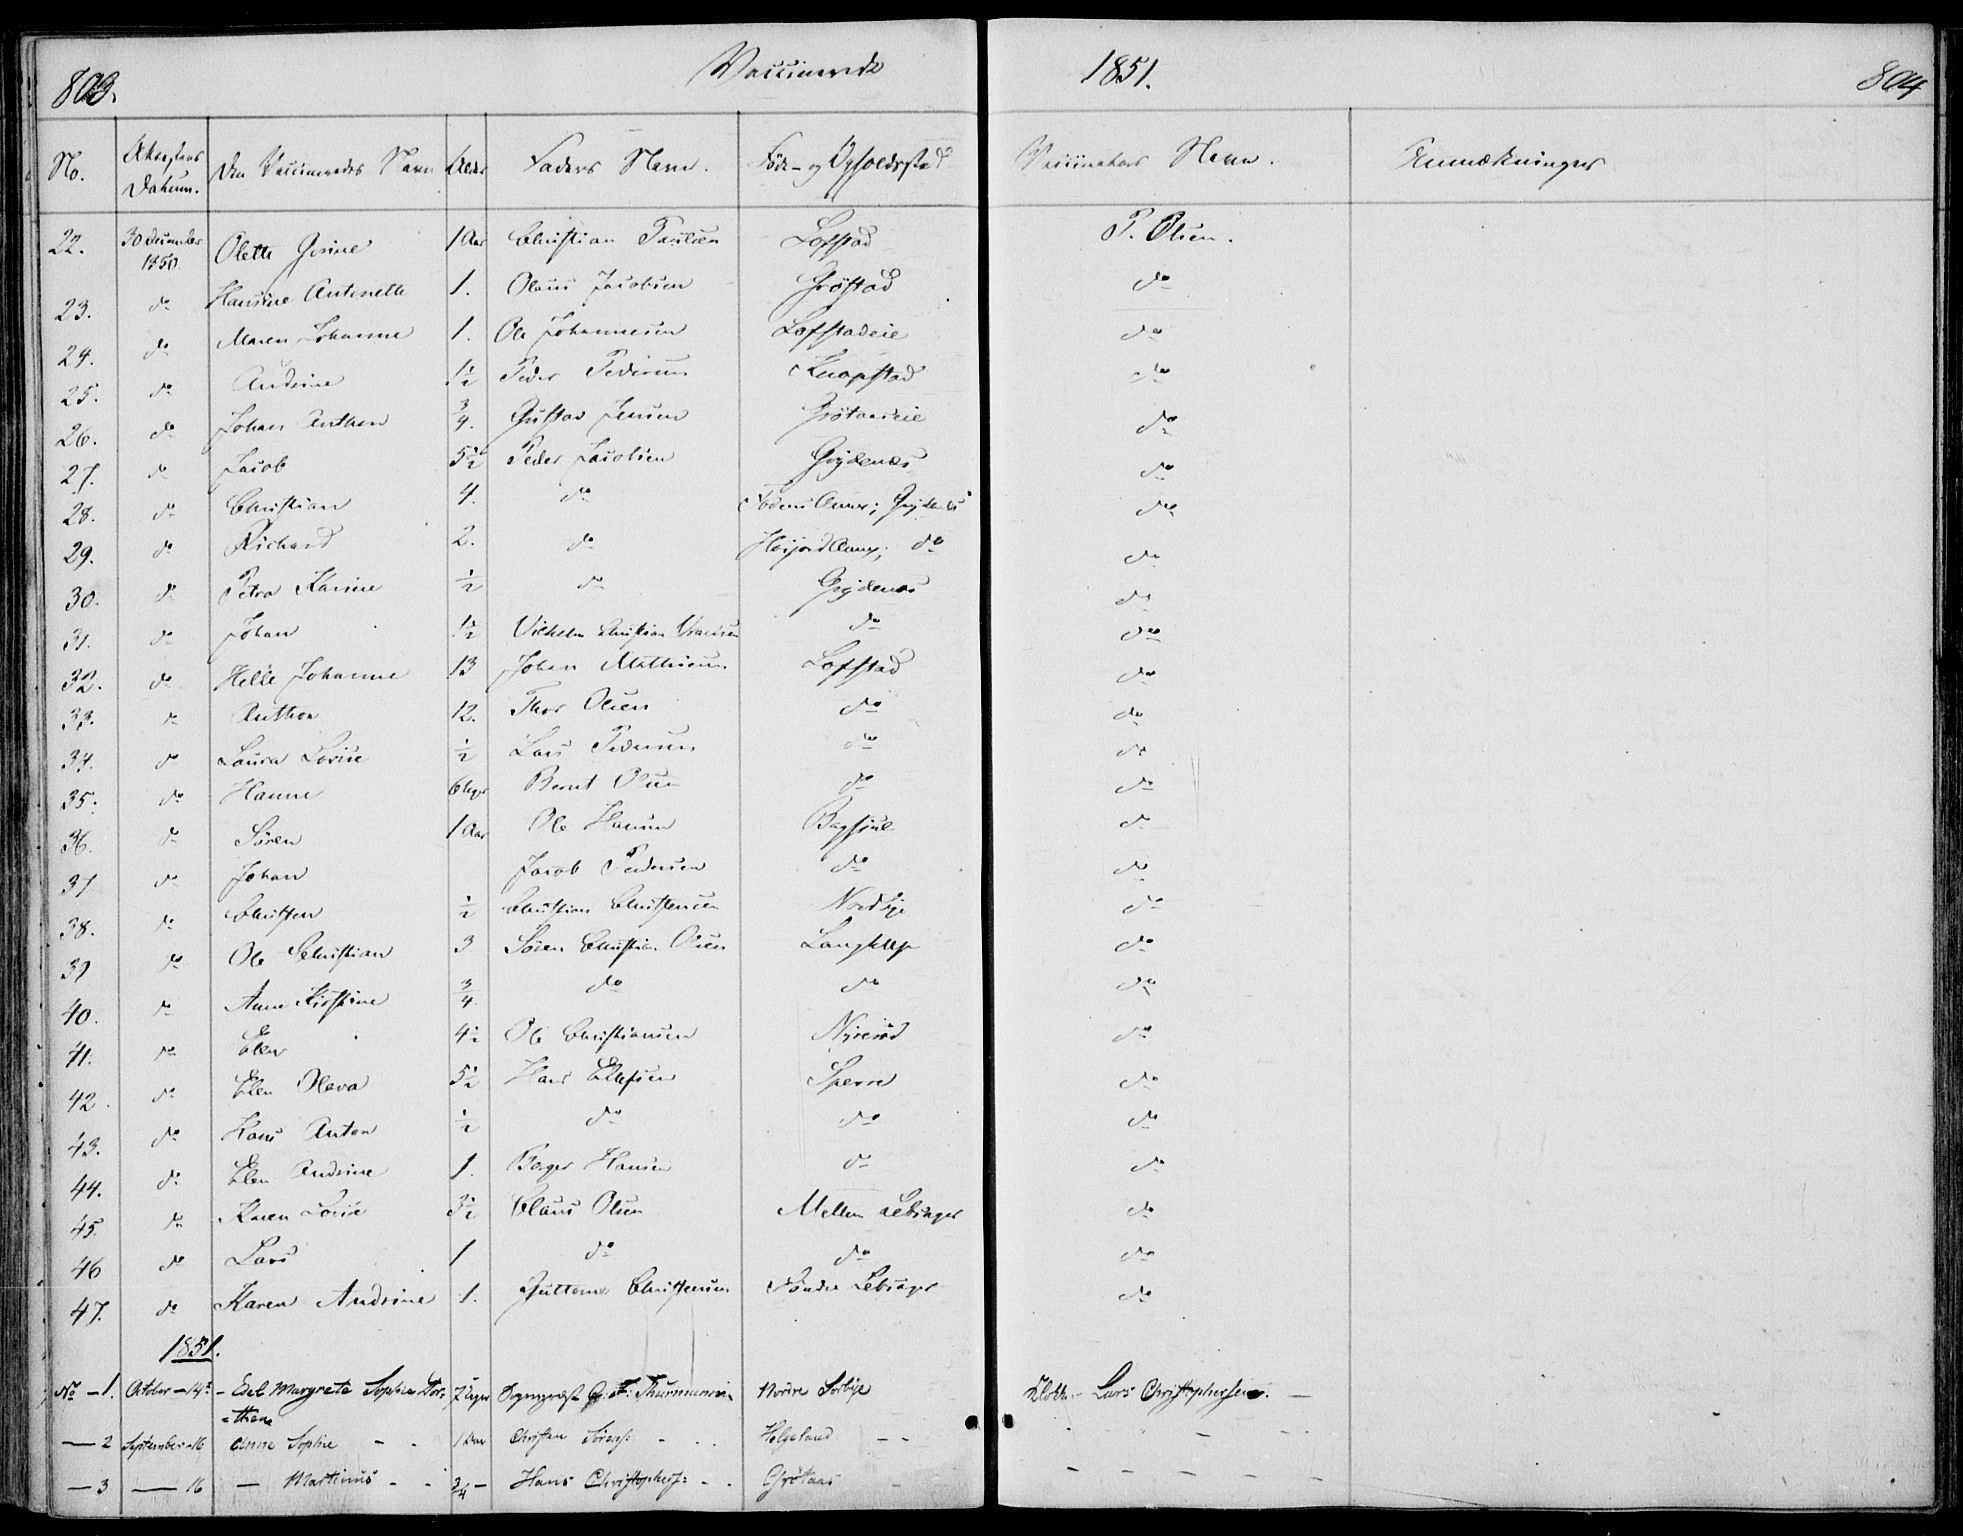 803.
Vaccinerede
1851.
804
No. Attestens Datum. Den Vaccineredes Navn Alder Faders Navn. Føde- og Opholdssted Vaccinators Navn. Anmærkninger
22. 30 December 1850. Olette Gorine 1 Aar Christian Paulsen Lofstad P. Olsen.
23. do Hansine Antonette 1. Olaus Jacobsen Grøstad do
24. do Maren Johanne 1. Ole Johannesen Lofstadeie do
25. do Andrine 1½ Peder Pedersen Knapstad do
26. do Johan Anthon ¾. Gustav Jensen Grøtaaseie do
27. do Jacob 5½ Peder Jacobsen Grydenæs do
28. do Christian 4. do Annex; Grydenæs do
29. do Richard 2. do Høijord Annex; do do
30. do Petra Karine ½ do Grydenæs do
31. do Johan 1½ Vilhelm Christian do do
32. do Helle Johanne 13 Johan Mathisen Lofstad do
33. do Anthon 12. Thor Olsen do do
34. do Laura Lovise ½ Lars Pedersen do do
35. do Hanne 6 Uger Bernt Olsen do do
36. do Søren 1 Aar Ole Hansen do
37 do Johan Jacob Pedersen do do
38. do Christen ½ Christian Christensen do
39 do Ole Christian 3 Søren Christian Olsen Langklep do
40. do Anne Kirstine ¾. do do do
41. do Elen 4½ Ole Christiansen Nyrerød do
42. do Elen Oleva 5½ Hans Ellefsen Sperre do
43. do Hans Anton ½ do do do
44. do Elen Andrine 1. Berger Hansen do do
45. do Karen Lovise 3½ Claus Olsen Mellem Lebsager do
46 do Lars 1 do do do
47. do Karen Andrine 1. Guttorm Christensen Søndre Lebsager do
1851.
No - 1. October - 14de - Edel Margrete Sophie Dor=
=thea 7 Uger Sogneprest Thurmanns Nordre Sørbye Klokker Lars Christophersen. -
- 2 September - 16 Anne Sophie - - 1 Aar Christen Sørens: - - Helgeland - -
- 3 - 16 - Martinus - - ¾ - Hans Christophers: - - Grøtaas -